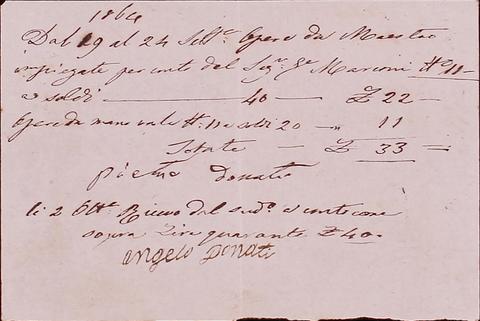 1864
Dal 19 al 24 Sett.e Opere da Maestro
impiegate per conto del Sig.r G.e Marconi N.o 11 —
a soldi — 40 — £ 22 —
Opere da manuale N. 11 a soldi 20 — „ 11
Totale — £ 33 —
pietro Donati
li 2 Ott.e Ricevo dal sud.o a conto come
sopra Lire quaranta £ 40.
angelo Donati